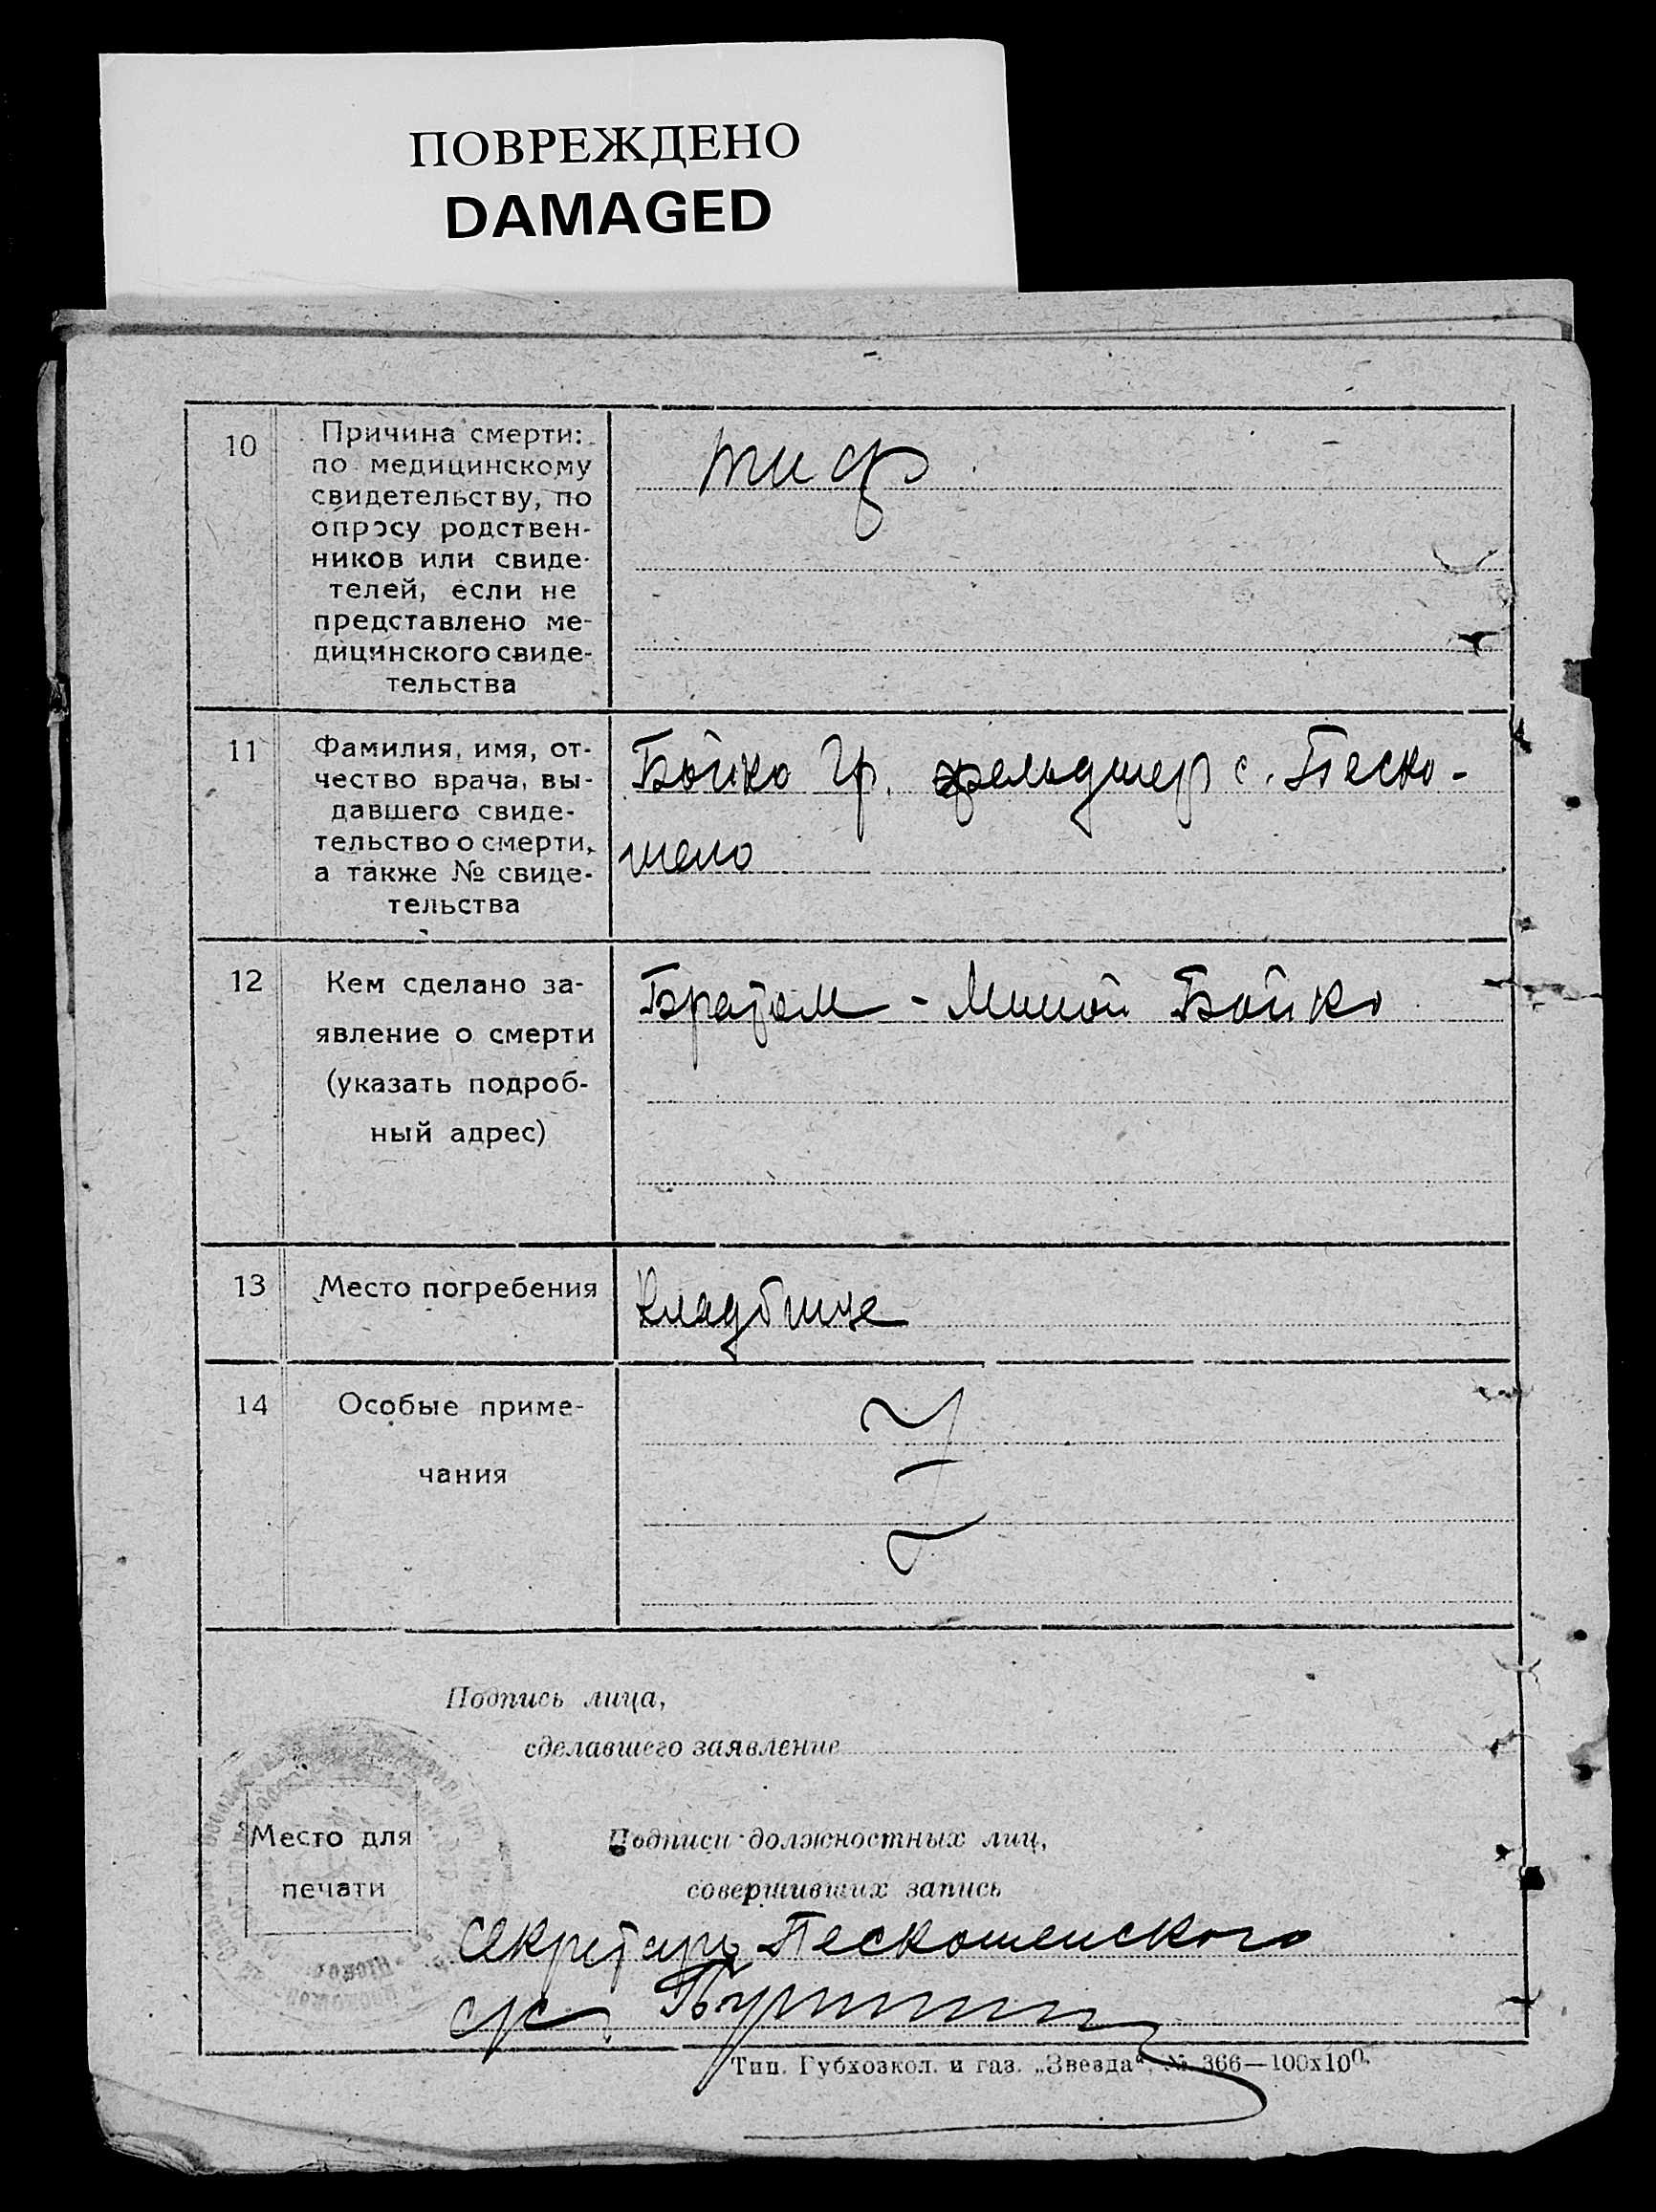 ПОВРЕЖДЕНО
DAMAGED
10
Причина смерти:
по медицинскому
свидетельству, по
опросу родствен-
ников или свиде-
телей, если не
представлено ме-
дицинского свиде-
тельства
тиф
11
Фамилия, имя, от-
чество врача, вы-
давшего свиде-
тельство о смерти,
а также № свиде-
тельства
Бойко Гр. фельдшер с. Песко-
шено
12
Кем сделано за-
явление о смерти
(указать подроб-
ный адрес)
Братом - Миной Бойко
13
Место погребения
Кладбище
14
Особые приме-
чания
Подпись лица,
сделавшего заявление
Место для
печати
Подписи должностных лиц,
совершивших запись
Секретарь Пескошенского
с/с
Тип. Губхозкол. и газ. „Звезда“, № 366—100х100.